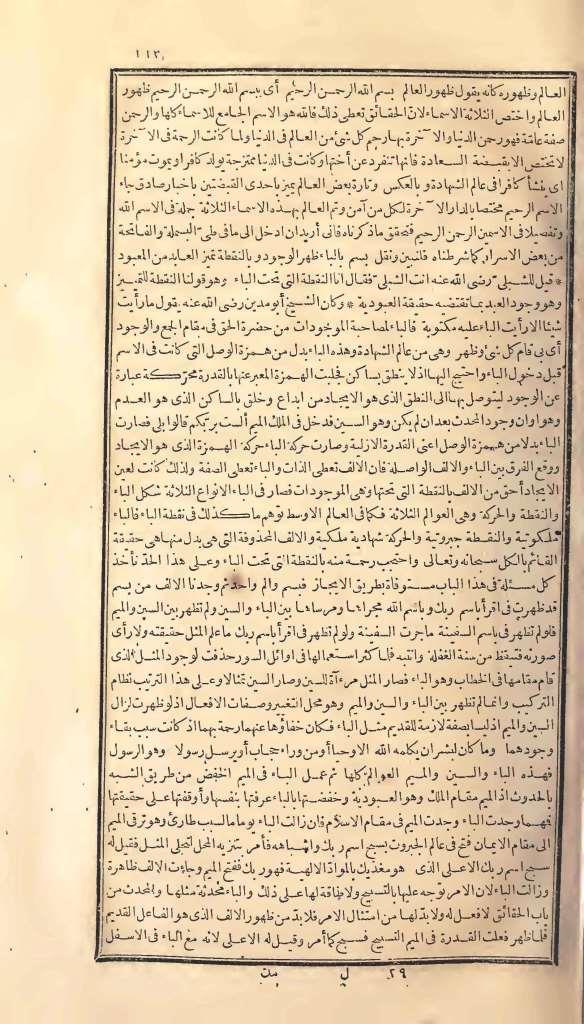 ١١٣
العالم وظهوره كأنه يقول ظهور العالم بسم الله الرحمن الرحيم أى ببسم الله الرحمن الرحيم ظهور
العالم واختص الثلاثة الاسماء لان الحقائق تعطى ذلك فالله هو الاسم الجامع للاسماء كلها والرحمن
صفة عامة فهو رحمن الدنيا والآخرة بها رحم كل شئ من العالم فى الدنيا ولما كانت الرحمة فى الآخرة
لا تختص الا بقبضة السعادة فانها تنفرد عن أختها وكانت فى الدنيا ممتزجة يولد كافرا ويموت مؤمنا
اى ينشأ كافرا فى عالم الشهادة وبالعكس وتارة وبعض العالم تميز باحدى القبضتين باخبار صادق جاء
الاسم الرحيم مختصا بالدار الآخرة لكل من آمن وتم العالم بهذه الاسماء الثلاثة جملة فى الاسم الله
وتفصيلا فى الاسمين الرحمن الرحيم فتحقق ماذكرناه فانى أريد ان ادخل الى مافى طى البسملة والفاتحة
من بعض الاسرار كما شرطناه فلنبين ونقل بسم بالباء ظهر الوجود وبالنقطة تميز العابد من المعبود
* قيل للشبلى رضى الله عنه انت الشبلى فقال انا النقطة التى تحت الباء وهو قولنا النقطة للتمييز
وهو وجود العبد بما تقتضيه حقيقة العبودية * وكان الشيخ أبو مدين رضى الله عنه يقول مارأيت
شيئا الا رأيت الباء عليه مكتوبة فالباء المصاحبة للموجودات من حضرة الحق فى مقام الجمع والوجود
أى بى قام كل شئ وظهر وهى من عالم الشهادة وهذه الباء بدل من همزة الوصل التى كانت فى الاسم
قبل دخول الباء واحتيج اليها اذ لا ينطق بساكن فجلبت الهمزة المعبر عنها بالقدرة محركة عبارة
عن الوجود ليتوصل بها الى النطق الذى هو الايجاد من ابداع وخلق بالساكن الذى هو العدم
وهو اوان وجود المحدث بعد ان لم يكن وهو السين فدخل فى الملك الميم ألست بربكم قالوا بلى فصارت
الباء بدلا من همزة الوصل اعنى القدرة الازلية وصارت حركة الباء حركة الهمزة الذى هو الايجاد
ووقع الفرق بين الباء والالف الواصلة فان الالف تعطى الذات والباء تعطى الصفة ولذلك كانت لعين
الايجاد أحق من الالف بالنقطة التى تحتها وهى الموجودات فصار فى الباء الانواع الثلاثة شكل الباء
والنقطة والحركة وهى العوالم الثلاثة فكما فى العالم الاوسط توهم ما كذلك فى نقطة الباء فالباء
ملكوتية والنقطة جبروتية والحركة شهادية ملكية والالف المحذوفة التى هى بدل منها هى حقيقة
القائم بالكل سبحانه وتعالى واحتجب رحمة منه بالنقطة التى تحت الباء وعلى هذا الحد تأخذ
كل مسئلة فى هذا الباب مستوفاة بطريق الايجاز فبسم والم واحد ثم وجدنا الالف من بسم
قد ظهرت فى اقرأ باسم ربك وباسم الله مجراها ومرساها بين الباء والسين ولم تظهر بين السين والميم
فلو لم تظهر فى باسم السفينة ماجرت السفينة ولو لم تظهر فى اقرأ باسم ربك ماعلم المثل حقيقته ولا رأى
صورته فتيقظ من سنة الغفلة وانتبه فلما كثر استعمالها فى اوائل السور حذفت لوجود المثل الذى
قام مقامها فى الخطاب وهو الباء فصار المثل مرآة للسين وصار السين مثالا وعلى هذا الترتيب نظام
التركيب وانما لم تظهر بين السين والميم وهو محل التغيير وصفات الافعال اذ لو ظهرت لزال
السين والميم اذ ليسا بصفة لازمة للقديم مثل الباء فكان خفاؤها عنهما رحمة بهما اذ كانت سبب بقاء
وجودهما وما كان لبشر ان يكلمه الله الا وحيا أو من وراء حجاب أو يرسل رسولا وهو الرسول
فهذه الباء والسين والميم العوالم كلها ثم عمل الباء فى الميم الخفض من طريق الشبه
بالحدوث اذ الميم مقام الملك وهو العبودية وخفضتها بالباء عرفتها بنفسها وأوقفتها على حقيقتها
فمهما وجدت الباء وجدت الميم فى مقام الاسلام فان زالت الباء يوما ما لسبب طارئ وهو ترقى الميم
الى مقام الايمان فتح فى عالم الجبروت بسبح اسم ربك واشباهه فأمر بتنزيه المحل لتجلى المثل فقيل له
سبح اسم ربك الاعلى الذى هو مغذيك بالمواد الالهية فهو ربك بفتح الميم وجاءت الالف ظاهرة
وزالت الباء لان الامر توجه عليها بالتسبيح ولا طاقة لها على ذلك والباء محدثة مثلها والمحدث من
باب الحقائق لا فعل له ولابد لها من امتثال الامر فلابد من ظهور الالف الذى هو الفاعل القديم
فلما ظهر فعلت القدرة فى الميم التسبيح فسبح كما أمر وقيل له الاعلى لانه مع الباء فى الاسفل
٢٩ ل مت